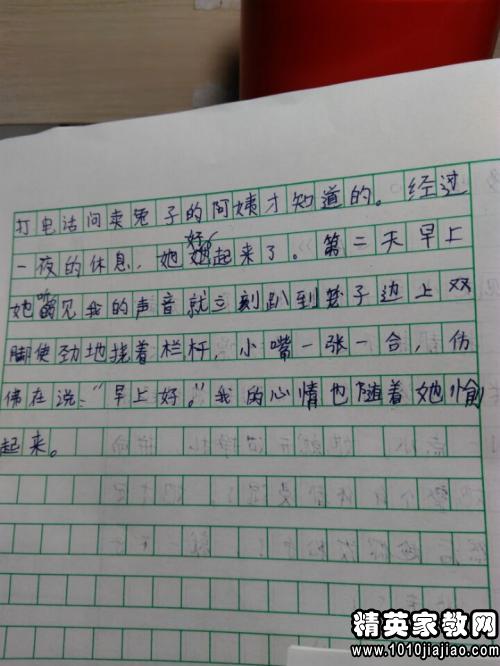 打电话问卖兔子的阿姨才知道的。经过
一夜的休息,她好起来了。第二天早上
她听见我的声音就立刻趴到笼子边上双
脚使劲地挠着栏杆,小嘴一张一合,仿
佛在说:“早上好。”我的心情也随着她愉
起来。
精英家教网
www.1010jiajiao.com